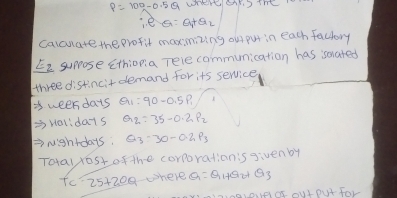 P = 100-0.5Q where
i.e Q = Q1+Q2
Calculate the Profit maximizing output in each factory
E2 suppose Ethiopia Tele communication has isolated
three distinct demand for its service
⇒ week days Q1 = 90-0.5P1
⇒ Holidays Q2 = 35-0.2P2
⇒ night days: Q3 = 30-0.2P3
Total cost of the corporation is given by
TC = 25+20Q where Q = Q1+Q2+Q3
of output for